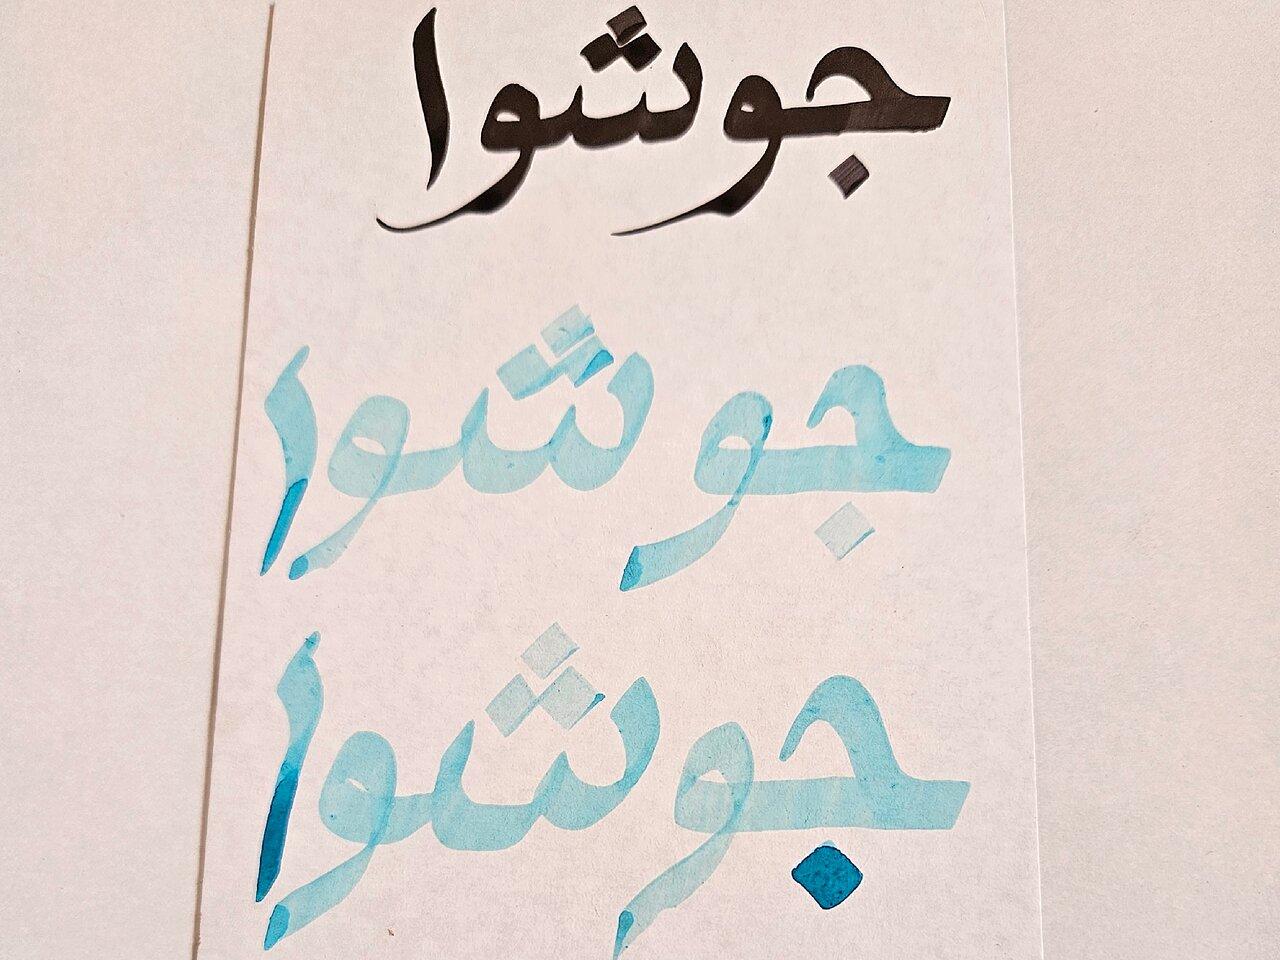 جوشوا
جوشوا
جوشوا